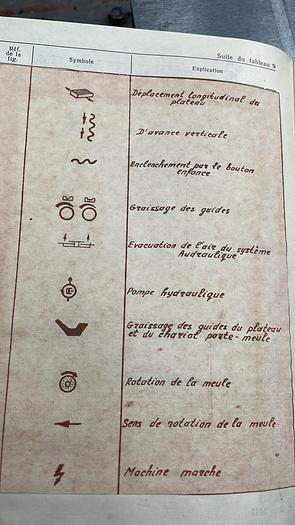 Suite du tableau 9
Réf.
de la
fig.
Symbole
Explication
Déplacement longitudinal du
plateau
D'avance verticale
Enclenchement par le bouton
enfoncé
Graissage des guides
Evacuation de l'air du système
hudraulique
Pompe hydraulique
Graissage des guides du plateau
et du chariot porte-meule
Rotation de la meule
Sens de rotation de la meule
Machine marche